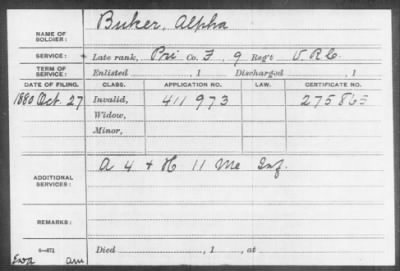 NAME OF SOLDIER: Buker, Alpha
SERVICE: Late rank, Pri Co. F, 9 Reg't V.R.C.
TERM OF SERVICE: Enlisted , 1 Discharged , 1
DATE OF FILING. CLASS. APPLICATION NO. LAW. CERTIFICATE NO.
1880 Oct. 27 Invalid, 411973 275863
Widow,
Minor,
ADDITIONAL SERVICES: A 4 & H 11 Me Inf.
REMARKS:
Died , 1 , at